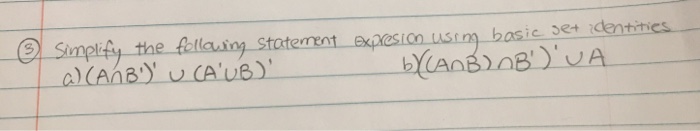 ③ Simplify the following statement expresion using basic set identities
a) (A∩B')' ∪ (A'∪B)' b) ((A∩B)∩B')' ∪ A